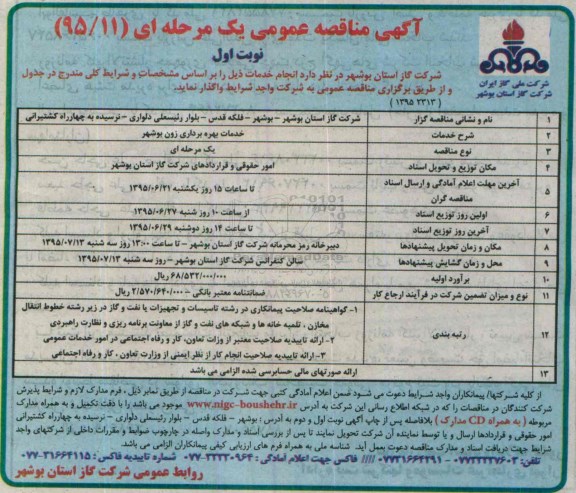 آگهی مناقصه عمومی یک مرحله ای (۹۵/۱۱)
نوبت اول
شرکت ملی گاز ایران
شرکت گاز استان بوشهر
شرکت گاز استان بوشهر در نظر دارد انجام خدمات ذیل را بر اساس مشخصات و شرایط کلی مندرج در جدول
و از طریق برگزاری مناقصه عمومی به شرکت واجد شرایط واگذار نماید.
(۱۳۹۵ ۲۳۱۳)
۱ نام و نشانی مناقصه گزار شرکت گاز استان بوشهر - بوشهر - فلکه قدس - بلوار رئیسعلی دلواری - نرسیده به چهارراه کشتیرانی
۲ شرح خدمات خدمات بهره برداری زون بوشهر
۳ نوع مناقصه یک مرحله ای
۴ مکان توزیع و تحویل اسناد امور حقوقی و قراردادهای شرکت گاز استان بوشهر
۵ آخرین مهلت اعلام آمادگی و ارسال اسناد مناقصه گران تا ساعات ۱۵ روز یکشنبه ۱۳۹۵/۰۶/۲۱
۶ اولین روز توزیع اسناد از ساعت ۱۰ روز شنبه ۱۳۹۵/۰۶/۲۷
۷ آخرین روز توزیع اسناد تا ساعت ۱۴ روز دوشنبه ۱۳۹۵/۰۶/۲۹
۸ مکان و زمان تحویل پیشنهادها دبیرخانه رمز محرمانه شرکت گاز استان بوشهر - تا ساعت ۱۳:۰۰ روز سه شنبه ۱۳۹۵/۰۷/۱۳
۹ محل و زمان گشایش پیشنهادها سالن کنفرانس شرکت گاز استان بوشهر - روز سه شنبه ۱۳۹۵/۰۷/۱۳
۱۰ برآورد اولیه ۶۸/۵۳۲/۰۰۰/۰۰۰ ریال
۱۱ نوع و میزان تضمین شرکت در فرآیند ارجاع کار ضمانتنامه معتبر بانکی - ۲/۵۷۰/۶۴۰/۰۰۰ ریال
۱۲ رتبه بندی ۱- گواهینامه صلاحیت پیمانکاری در رشته تاسیسات و تجهیزات یا نفت و گاز در زیر رشته خطوط انتقال
مخازن ، تلمبه خانه ها و شبکه های نفت و گاز از معاونت برنامه ریزی و نظارت راهبردی
۲- ارائه تاییدیه صلاحیت معتبر از وزات تعاون، کار و رفاه اجتماعی در امور خدمات عمومی
۳- ارائه تاییدیه صلاحیت انجام کار از نظر ایمنی از وزارت تعاون ، کار و رفاه اجتماعی
۱۳ ارائه صورتهای مالی حسابرسی شده الزامی می باشد
از کلیه شرکتها/ پیمانکاران واجد شرایط دعوت می شود ضمن اعلام آمادگی کتبی جهت شرکت در مناقصه از طریق نمابر ذیل ، فرم مدارک لازم و شرایط پذیرش
شرکت کنندگان در مناقصات را که در شبکه اطلاع رسانی این شرکت به آدرس www.nigc-boushehr.ir موجود می باشد را با دقت تکمیل و به همراه مدارک
مربوطه ( به همراه CD مدارک ) بلافاصله پس از چاپ آگهی نوبت اول و دوم به آدرس : بوشهر - فلکه قدس - بلوار رئیسعلی دلواری - نرسیده به چهارراه کشتیرانی
امور حقوقی و قراردادها ارسال و یا توسط نماینده آن شرکت تحویل نمایند تا پس از بررسی اسناد و مدارک واصله در چارچوب ضوابط و مقررات داخلی از شرکتهای واجد
شرایط جهت دریافت اسناد و مدارک مناقصه دعوت بعمل آید. شناسه ملی به همراه فرم های ارزیابی کیفی پیمانکاران الزامی می باشد.
روابط عمومی شرکت گاز استان بوشهر